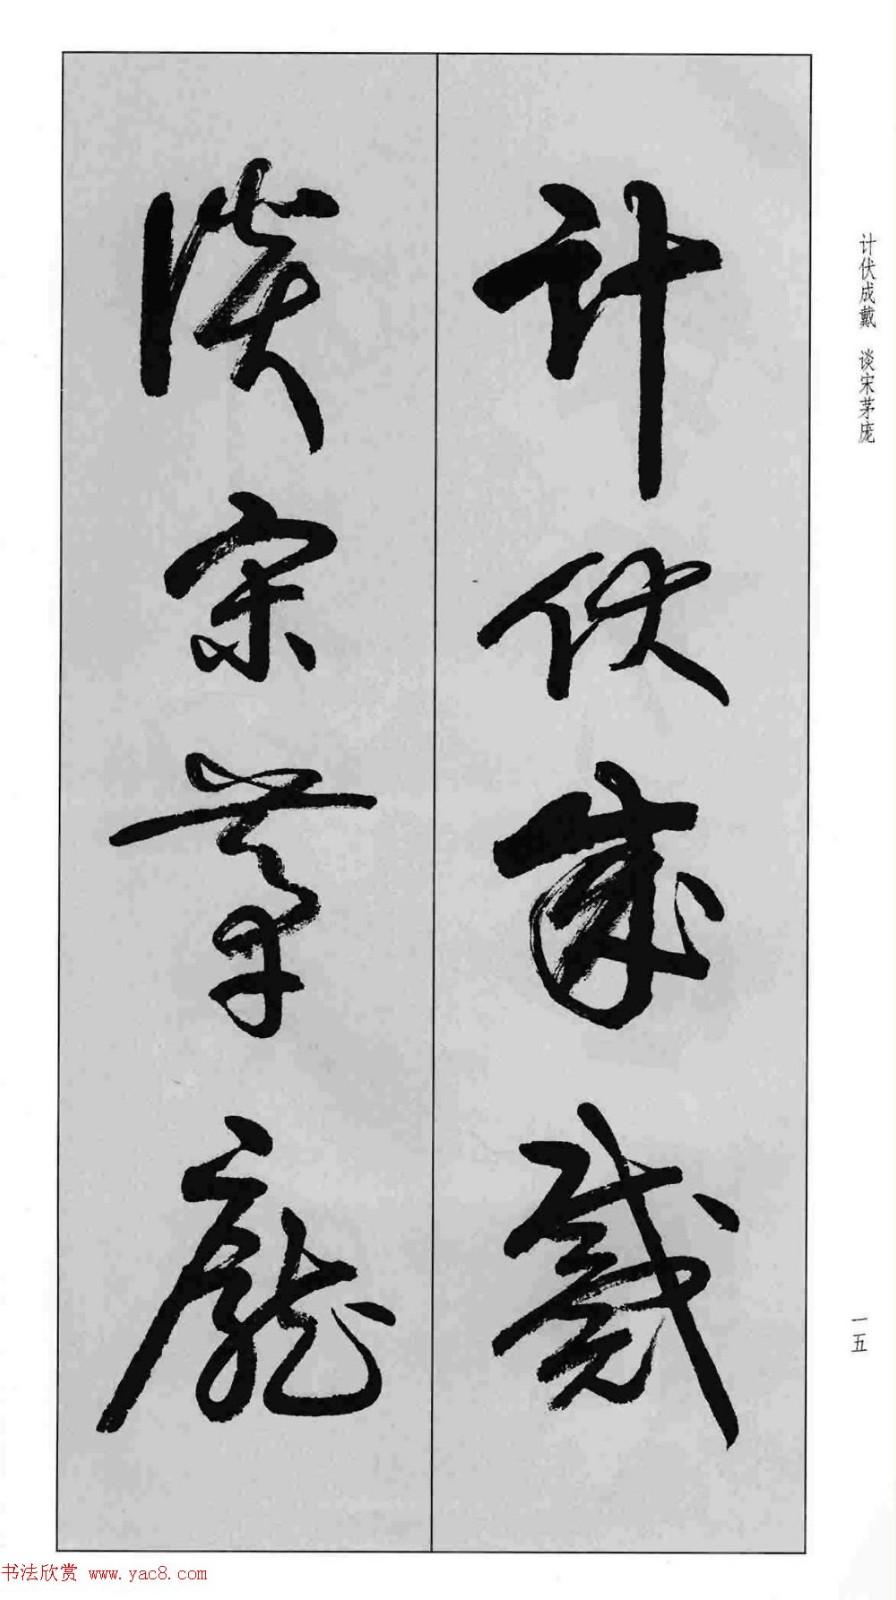 計伏成戴
談宋茅龐
计伏成戴 谈宋茅庞
一五
书法欣赏 www.yac8.com